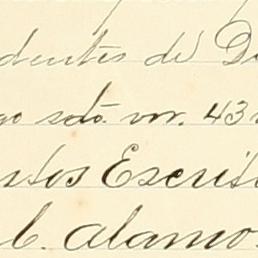 dentes de D
go sdo. vor. 43
ntos Escrit
b. Alamo